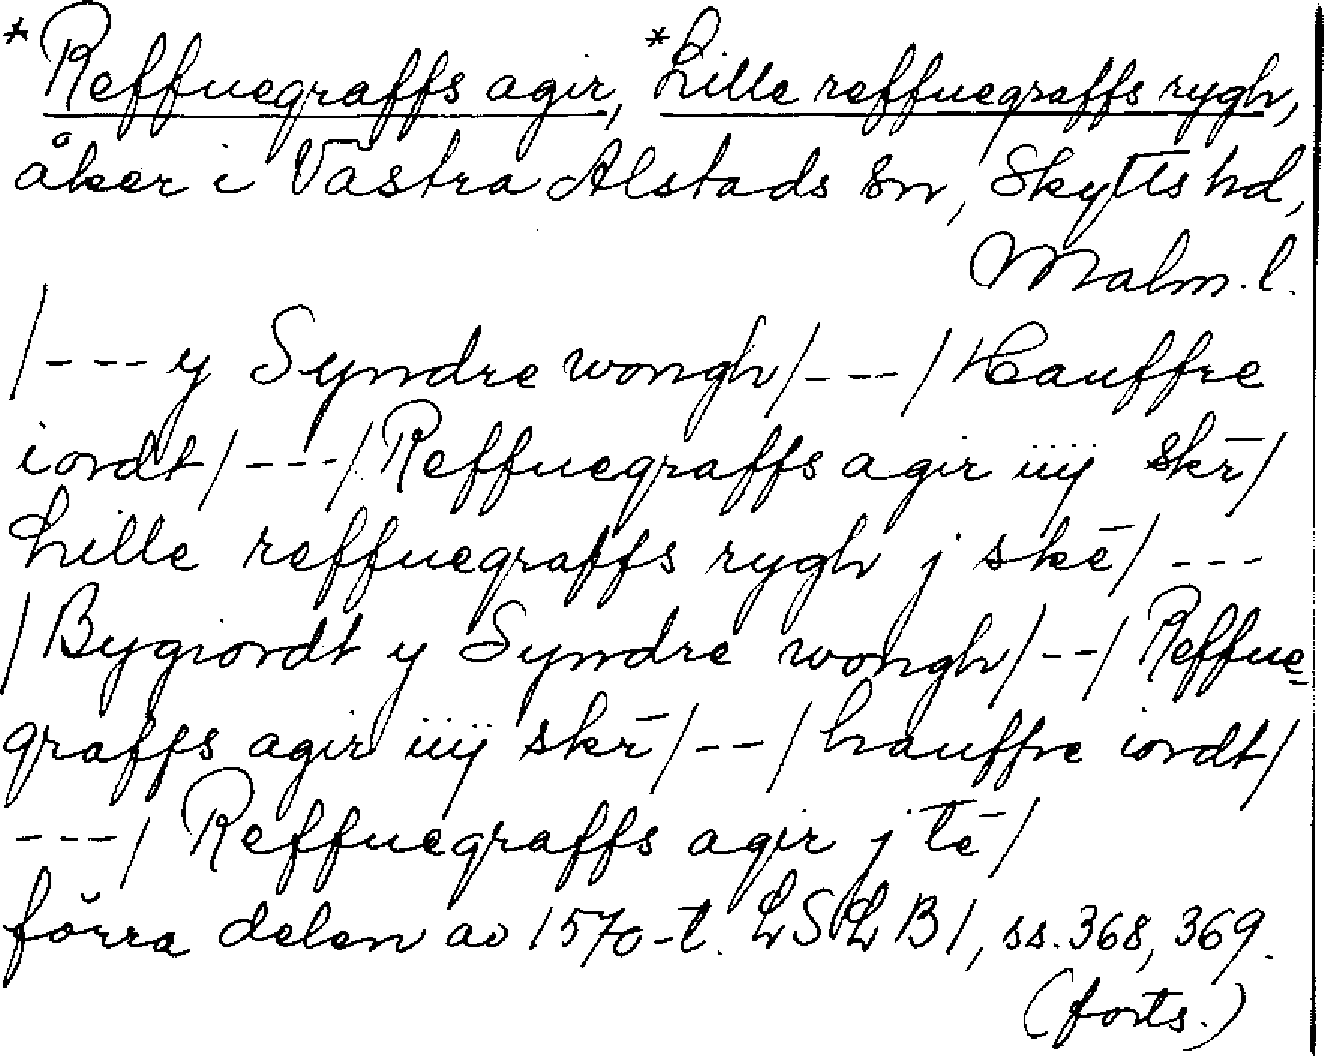 *Reffuegraffs agir, *Lille reffuegraffs rygh,
åker i Västra Alstads sn, Skytts hd,
Malm. l.
/--- y Syndre wongh/---/Hauffre
iordt/---/Reffuegraffs agir iiij skr̄/
Lille reffuegraffs rygh j skē/---
/Bygiordt y Syndre wongh/--/Reffue-
graffs agir iiij skr̄/--/hauffre iordt/
---/Reffuegraffs agir j tē/
förra delen av 1570-t. LSLB1, ss. 368, 369.
(forts.)